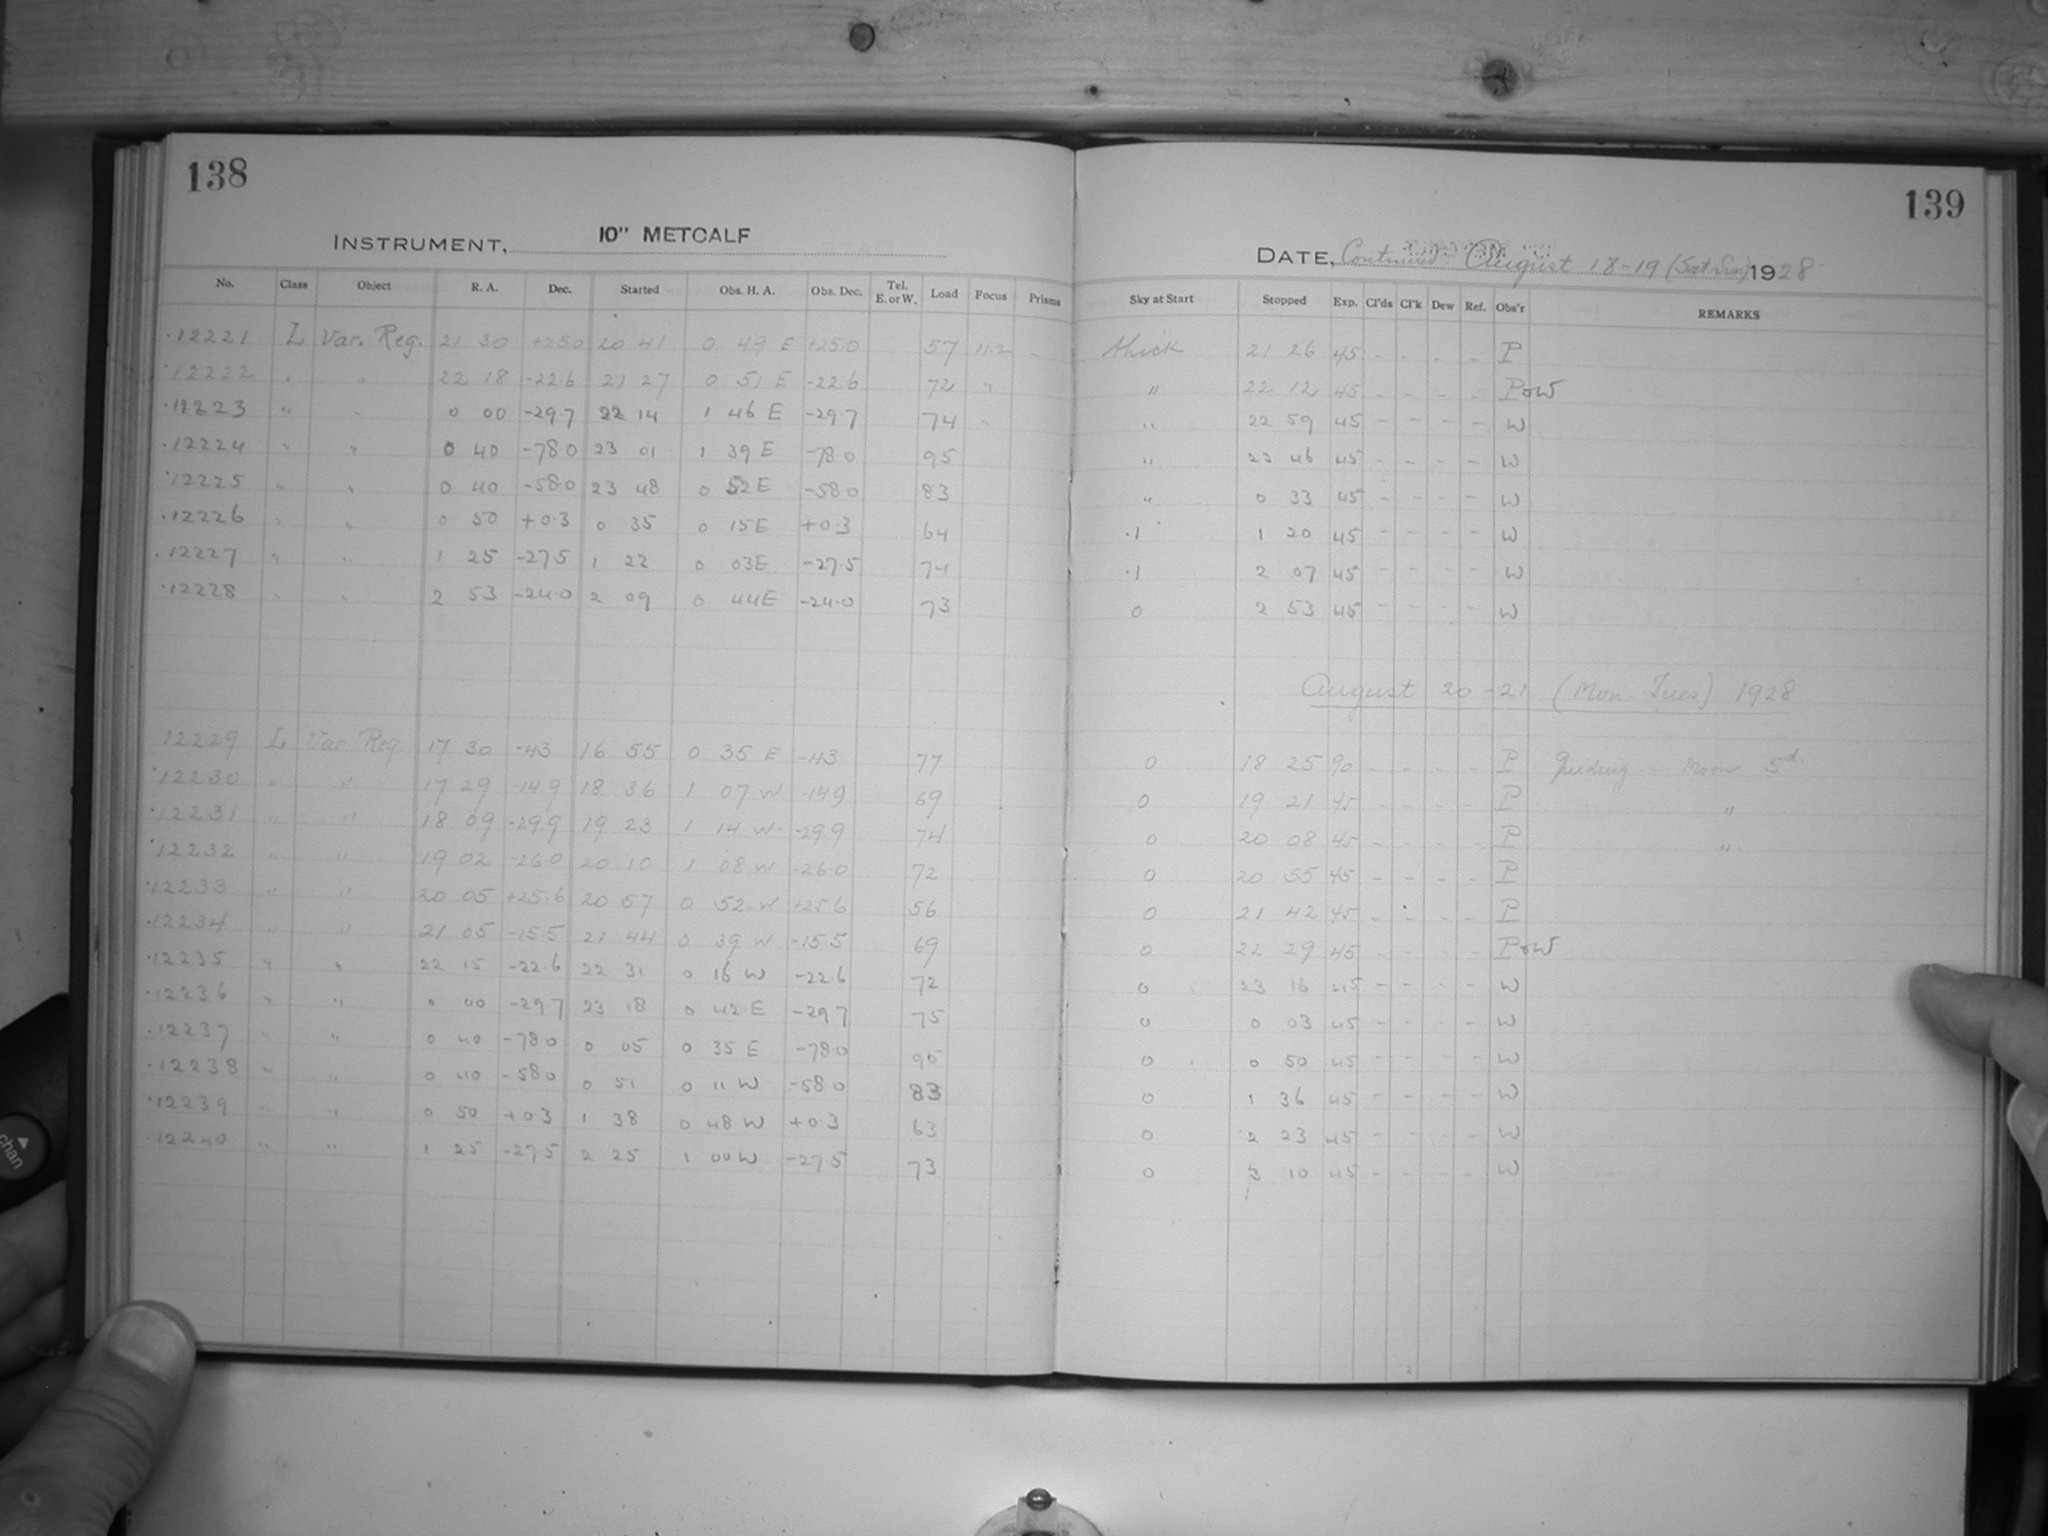 138
139
INSTRUMENT, 10" METCALF
DATE, Continued August 18-19 (Sat-Sun) 1928
No. Class Object R. A. Dec. Started Obs. H. A. Obs. Dec. Tel. E. or W. Load Focus Prisms Sky at Start Stopped Exp. Cl'ds Cl'k Dew Ref. Obs'r REMARKS
.12221 L Var. Reg. 21 30 +25.0 20 41 0 49 E +25.0 57 11.2 " thick 21 26 45 - - - - P
.12222 " " 22 18 -22.6 21 27 0 51 E -22.6 72 " " 22 12 45 - - - - P&W
.12223 " " 0 00 -29.7 22 14 1 46 E -29.7 74 " " 22 59 45 - - - - W
.12224 " " 0 40 -78.0 23 01 1 39 E -78.0 95 " 23 46 45 - - - - W
.12225 " " 0 40 -58.0 23 48 0 52 E -58.0 83 " 0 33 45 - - - - W
.12226 " " 0 50 +0.3 0 35 0 15 E +0.3 64 .1 1 20 45 - - - - W
.12227 " " 1 25 -27.5 1 22 0 03 E -27.5 74 .1 2 07 45 - - - - W
.12228 " " 2 53 -24.0 2 09 0 44 E -24.0 73 0 2 53 45 - - - - W
August 20-21 (Mon-Tues) 1928
12229 L Var Reg. 17 30 -43 16 55 0 35 E -43 77 0 18 25 90 - - - - P Guiding - Moon 5d.
.12230 " " 17 29 -14.9 18 36 1 07 W -14.9 69 0 19 21 45 - - - - P "
.12231 " " 18 09 -29.9 19 23 1 14 W. -29.9 74 0 20 08 45 - - - - P "
.12232 " " 19 02 -26.0 20 10 1 08 W -26.0 72 0 20 55 45 - - - - P
.12233 " " 20 05 +25.6 20 57 0 52 W +25.6 56 0 21 42 45 - - - - P
.12234 " " 21 05 -15.5 21 44 0 39 W -15.5 69 0 22 29 45 - - - - P&W
.12235 " " 22 15 -22.6 22 31 0 16 W -22.6 72 0 23 16 45 - - - - W
.12236 " " 0 00 -29.7 23 18 0 42 E -29.7 75 0 0 03 45 - - - - W
.12237 " " 0 40 -78.0 0 05 0 35 E -78.0 95 0 0 50 45 - - - - W
.12238 " " 0 40 -58.0 0 51 0 11 W -58.0 83 0 1 36 45 - - - - W
.12239 " " 0 50 +0.3 1 38 0 48 W +0.3 63 0 2 23 45 - - - - W
.12240 " " 1 25 -27.5 2 25 1 00 W -27.5 73 0 3 10 45 - - - - W
chan